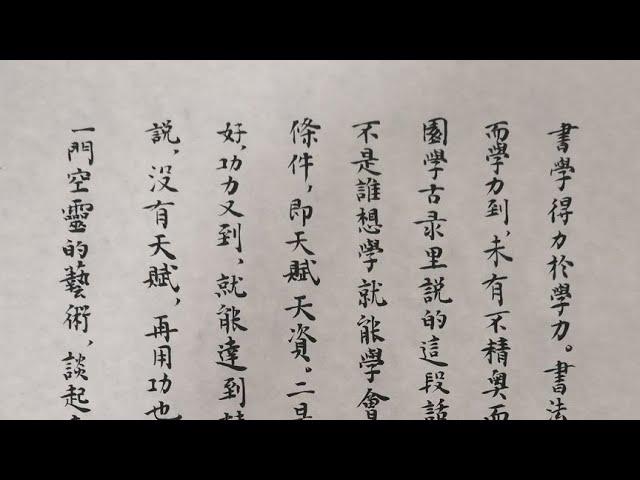 書學得力於學力。書法
而學力到,未有不精奧而
園學古录里說的這段話
不是誰想學就能學會
條件,即天賦天資。二是
好,功力又到,就能達到
說,没有天賦,再用功也
一門空靈的藝術,談起